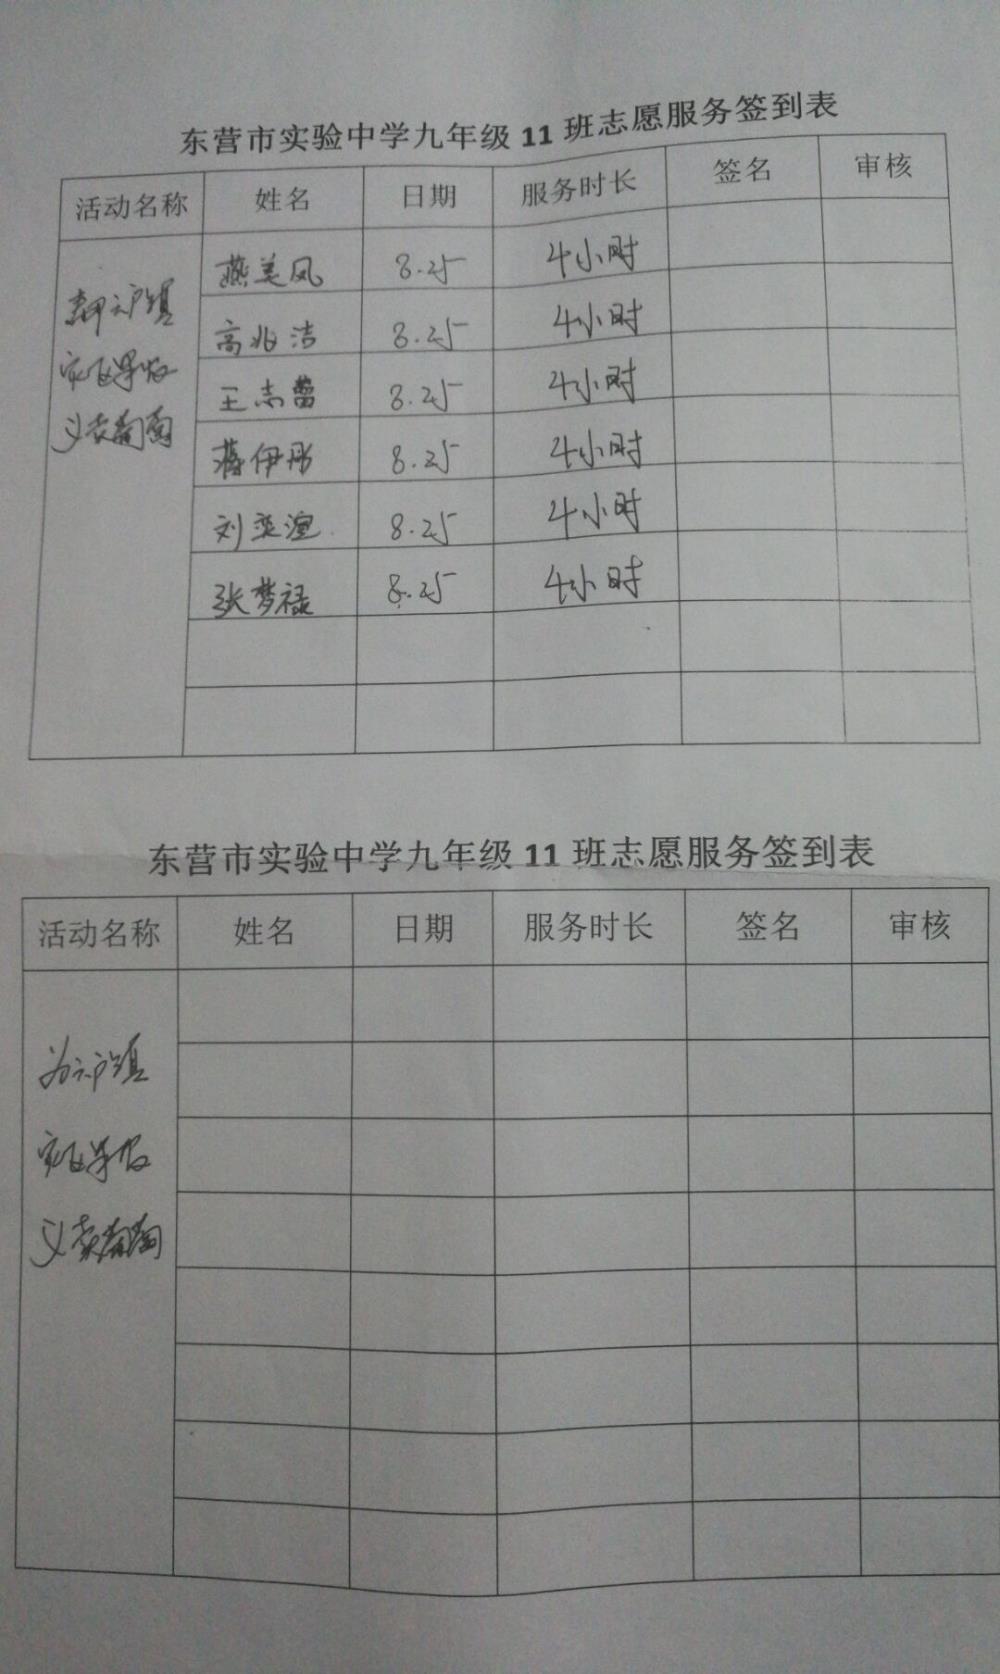 东营市实验中学九年级 11 班志愿服务签到表
活动名称 姓名 日期 服务时长 签名 审核
燕美凤 8.25 4小时
高兆洁 8.25 4小时
王志蕾 8.25 4小时
蒋伊彤 8.25 4小时
刘奕滢 8.25 4小时
张梦禄 8.25 4小时
六户镇
义卖葡萄
东营市实验中学九年级 11 班志愿服务签到表
活动名称 姓名 日期 服务时长 签名 审核
为六户镇
义卖葡萄